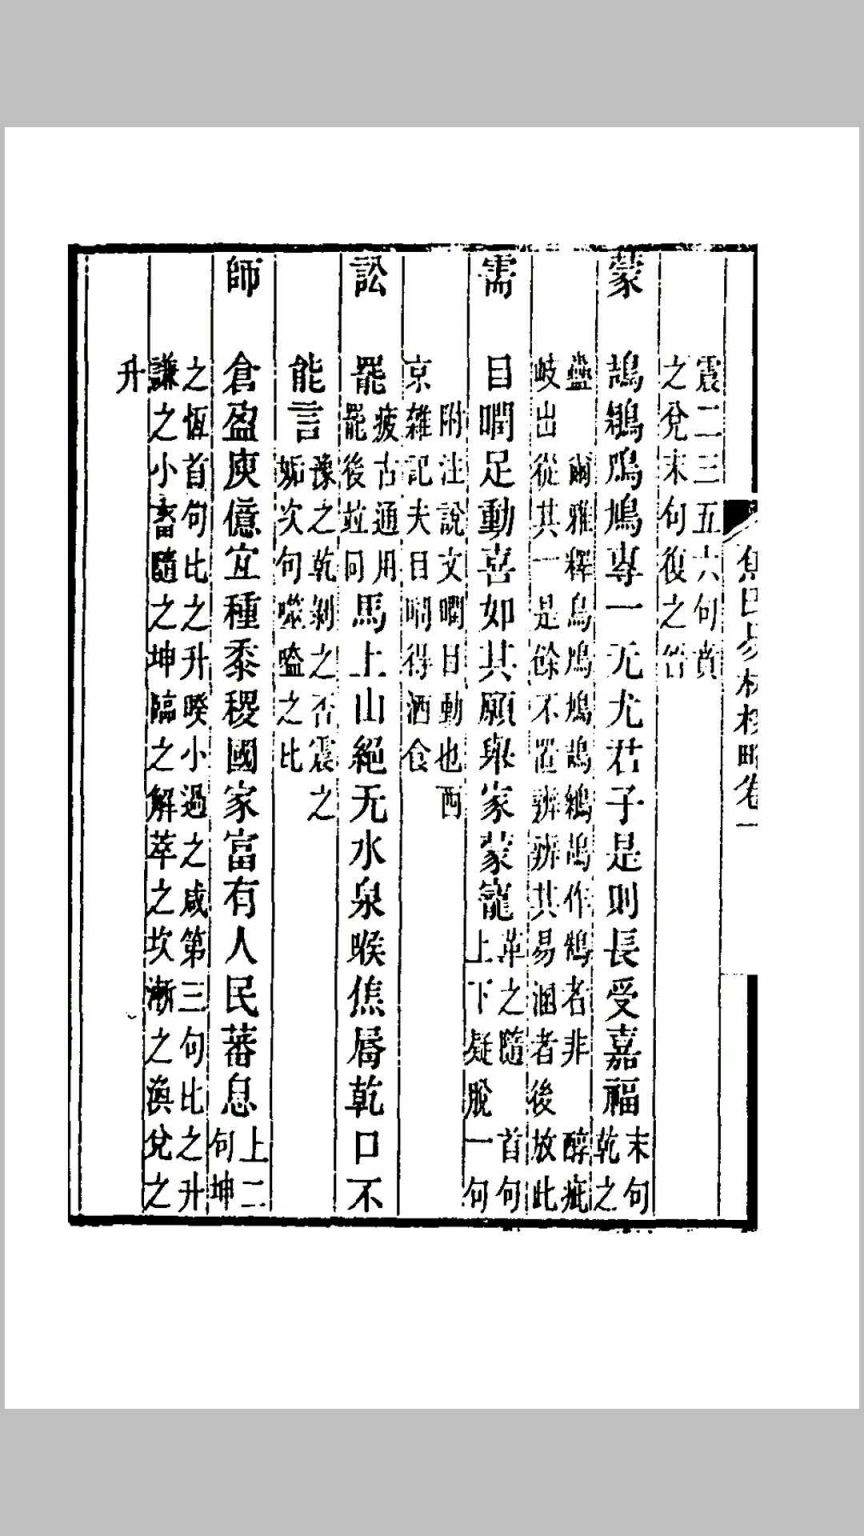 焦氏易林校略卷一
震二三五六句賁
之兌末句復之
蒙　鴶鵴鳲鳩專一无尤君子是則長受嘉福末句
乾之
蠱　爾雅釋鳥鳲鳩鴶鵴鴶作鵠者非　醇疵
岐出從其一是餘不置辨辨其易溷者後放此
需　目瞤足動喜如其願舉家蒙寵革之隨　首句
上下疑脫一句
附注說文瞤目動也西
京雜記夫目瞤得酒食
訟　罷疲古通用
罷後並同
馬上山絕无水泉喉焦脣乾口不
能言豫之乾剝之否震之
姤次句噬嗑之比
師　倉盈庾億宜種黍稷國家富有人民蕃息上二
句坤
之恆首句比之升睽小過之咸第三句比之升
謙之小畜隨之坤臨之解萃之坎漸之渙兌之
升